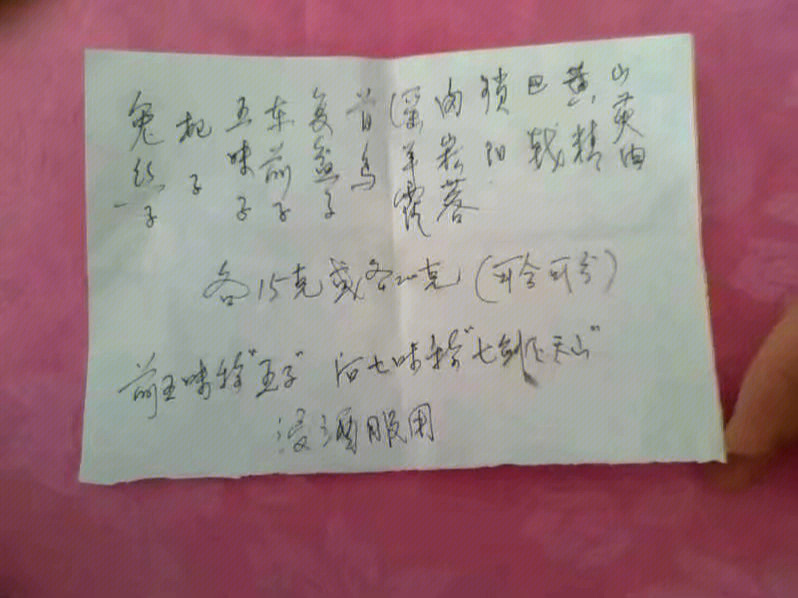 兔丝子
杞子
五味子
车前子
复盆子
首乌
淫羊霍
肉苁蓉
锁阳
巴戟
黄精
山萸肉
各15克或各20克（可合可分）
前五味称"五子" 后七味称"七剑下天山"
浸酒服用